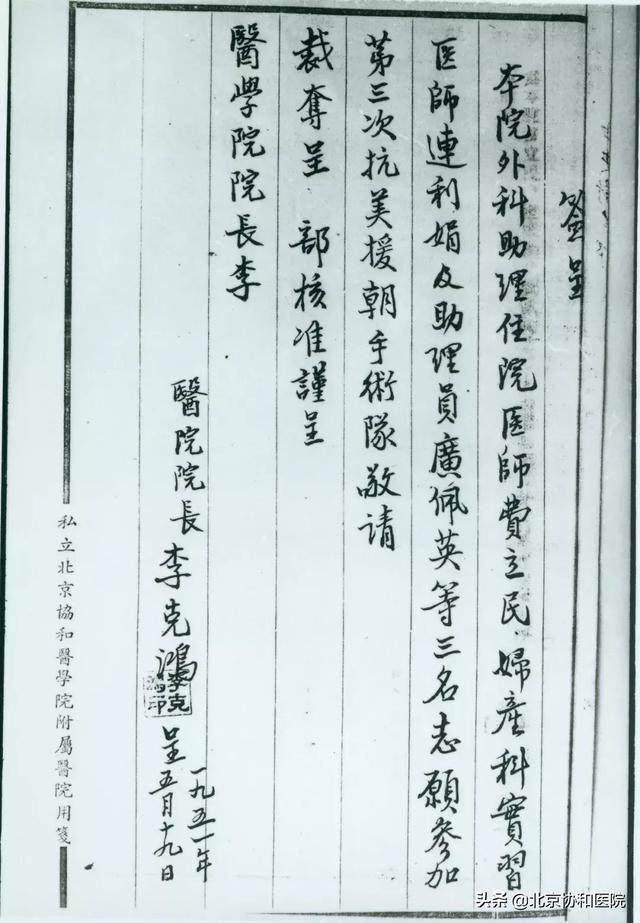 签呈
本院外科助理住院医師費立民、婦產科實習
医師連利娟及助理員廣佩英等三名志願參加
第三次抗美援朝手術隊敬请
裁奪呈 部核准謹呈
醫學院院長李
醫院院長 李克鴻 呈
李克鴻印
一九五一年
五月十九日
私立北京協和醫學院附屬醫院用箋
头条@北京协和医院